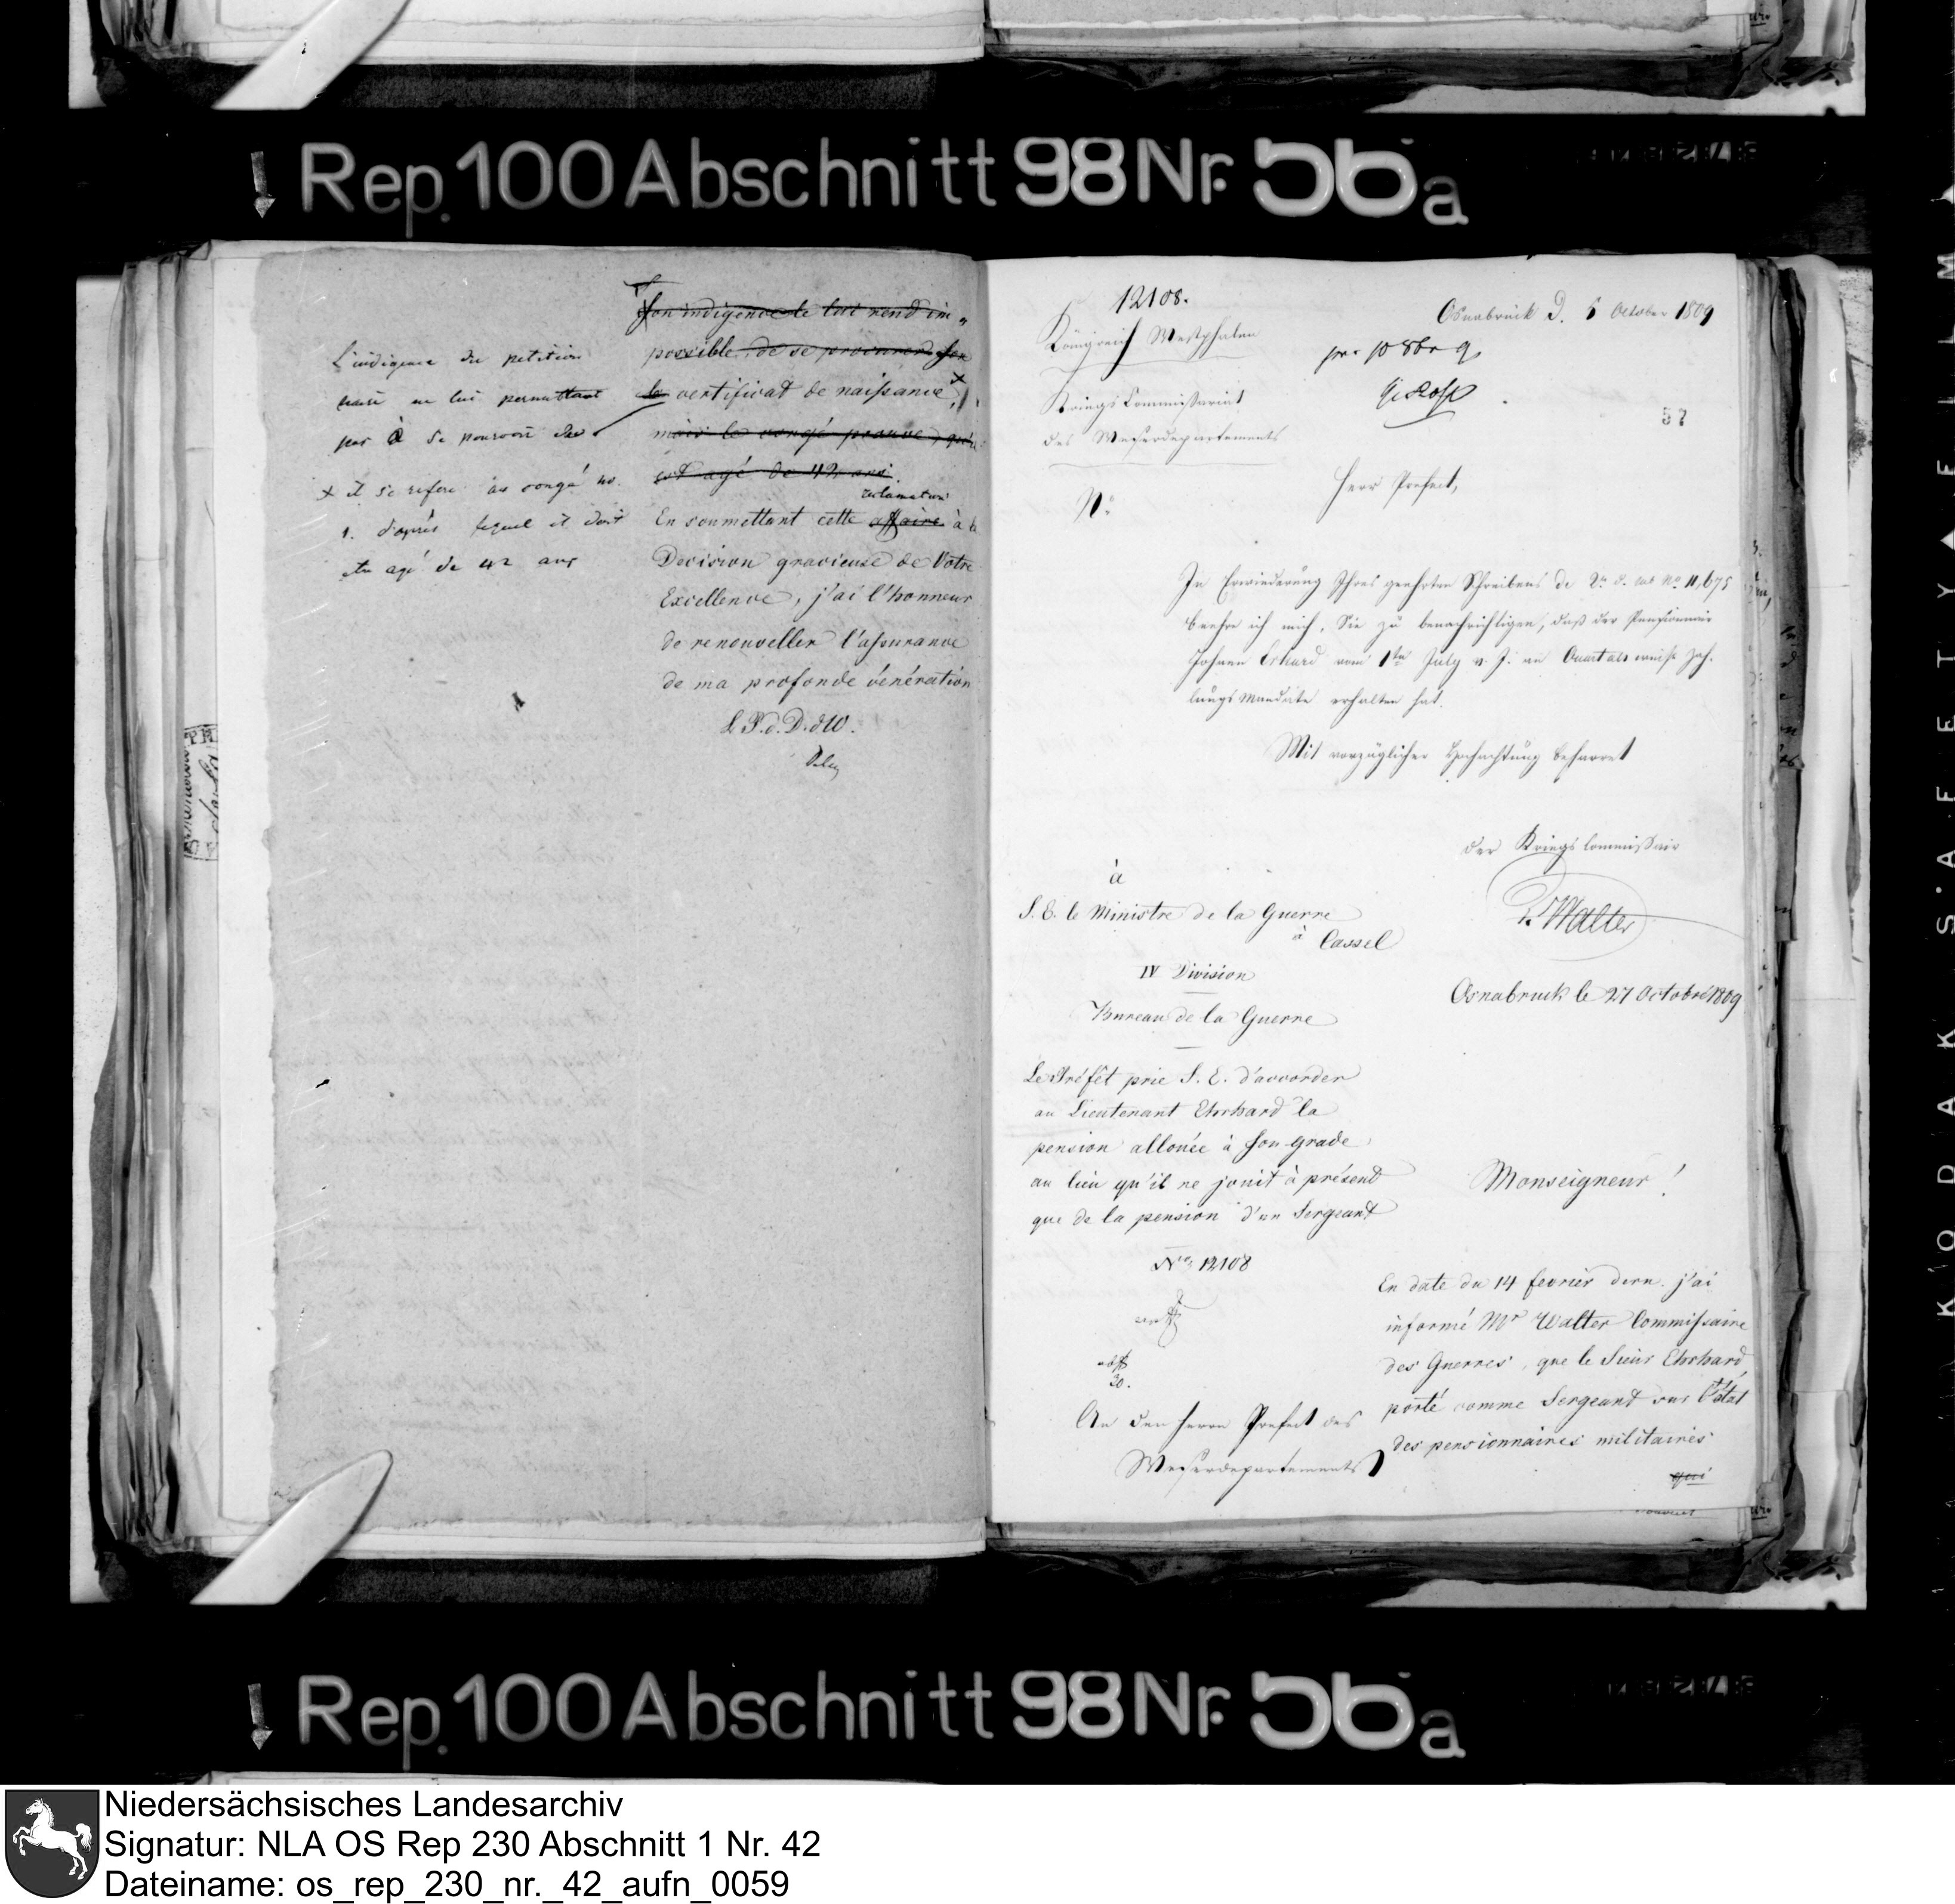 Rep. 100 Abschnitt 98 Nr. 56a
Son indigence le lui rend im„
possible, de se procurer son
le certificat de naissance,
mais le congé prouve, qu'il
est agé de 42 ans.
reclamation
En soumettant cette affaire à la
Decision gracieuse de Votre
Excellence, j'ai l'honneur
de renouveller l'assurance
de ma profonde vénération
L. P. d. D. d W.
L'indigence du petition
naire ne lui permettant
pas à se pourvoir du
x il se refere au congé no.
1. d'après lequel il doit
etre agé de 42 ans
12108.
Königreich Westphalen
Kriegs Commissariat
des Weserdepartements
No
Osnabrück d. 6 October 1809
pr. 10 8br 9
57
Herr Prefect,
In Erwiederung Ihres geehrten Schreibens de 2n d. sub No. 11,675
beehre ich mich, Sie zu benachrichtigen, daß der Pensionair
Johann Erhard vom 1ten July v. J. an Quartals weise Zah-
lungs Mandate erhalten hat.
Mit vorzüglicher Hochachtung beharret
der Kriegs Commissair
Walter
à
S. E. le Ministre de la Guerre
à Cassel
IV Division
Bureau de la Guerre
Le Préfêt prie S. E. d'accorder
au Lieutenant Ehrhard la
pension allouée à son grade
au lieu qu'il ne jouit à présent
que de la pension d'un Sergeant
No 12108
30.
An den Herrn Prefect des
Weserdepartements
Osnabruck le 27 Octobre 1809
Monseigneur!
En date du 14 fevrier dern. j'ai
informé Mr Walter Commissaire
des Guerres, que le Sieur Ehrhard
porté comme Sergeant sur l'état
des pensionnaires militaires
qui
Rep. 100 Abschnitt 98 Nr. 56a
KODAK SAFETY FILM
Niedersächsisches Landesarchiv
Signatur: NLA OS Rep 230 Abschnitt 1 Nr. 42
Dateiname: os_rep_230_nr._42_aufn_0059